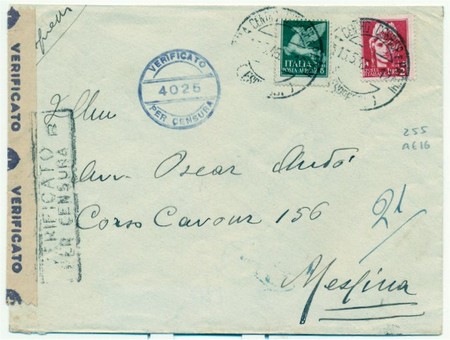 VERIFICATO
VERIFICATO
VERIFICATO
VERIFICATO
4026
PER CENSURA
ITALIA
POSTA AEREA
255
AE16
VERIFICATO
PER CENSURA
Oscar
Corso Cavour 156
21
Messina